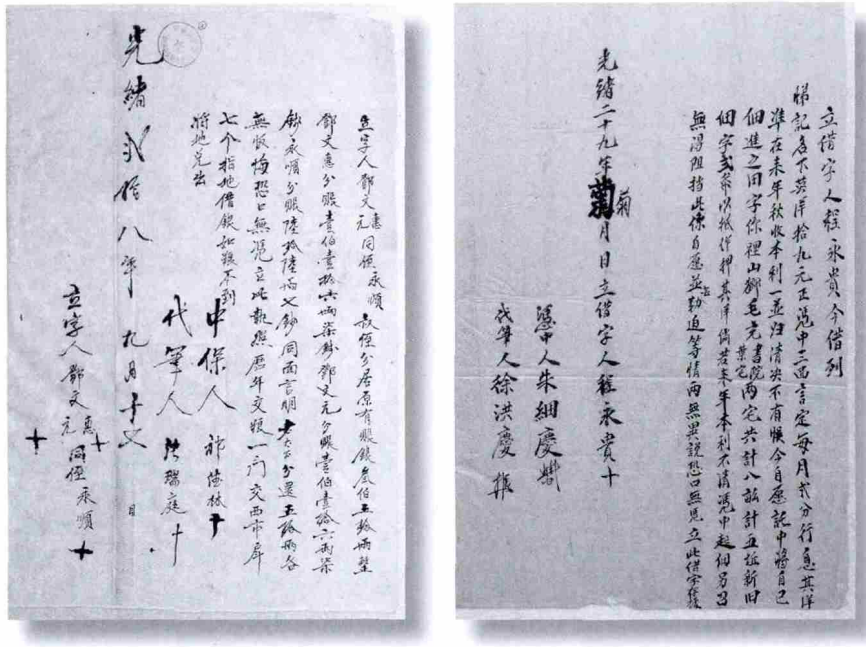 立字人鄧文惠元同侄永順叔侄分居原有賬錢叁伯五拾両整
鄧文惠分賬壹伯壹拾六両柒錢鄧文元分賬壹伯壹拾六両柒
錢永順分賬陸拾陸両七錢同面言明分還五拾両各
無恢悔恐口無憑立此執照歷年交類一門交西市库
七个指地借錢如錢不到
將地兌出
中保人
代筆人 瑞庭 十
光緒弍拾八年九月十文日
立字人鄧文惠元同侄永順
立借字人程永貴今借到
悌記名下英洋拾九元正憑中三面言定每月弍分行息其洋
準在来年秋收本利一並归清決不有悮今自愿託中將自己
佃進之田字你裡山腳毛元書院葉宅两宅共計八畝計五坵新旧
佃字弍希以抵作押其洋倘若来年本利不清憑中起佃另召
無得阻挡此係自愿並無勒迫等情两無異説恐口無凴立此借字
光緒二十九年菊月日立借字人程永貴十
憑中人朱細慶
代筆人徐洪慶